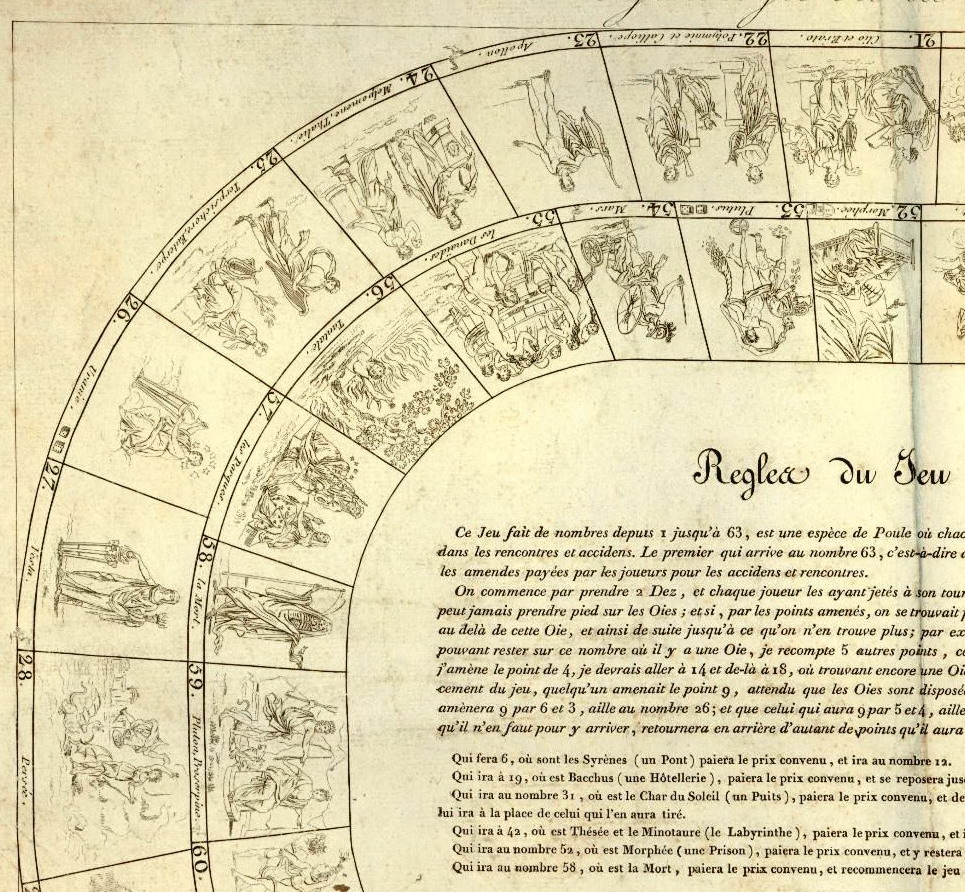 21. Clio et Erato.
22. Polymnie et Calliope.
23. Apollon.
24. Melpomene, Thalie.
25. Terpsichore, Euterpe.
26. Uranie.
27. Vesta.
28. Persée.
52. Morphée.
53. Plutus.
54. Mars.
55. les Danaïdes.
56. Tantale.
57. les Parques.
58. la Mort.
59. Pluton, Proserpine.
60.
Regles du Jeu
Ce Jeu fait de nombres depuis 1 jusqu'à 63, est une espèce de Poule où chac
dans les rencontres et accidens. Le premier qui arrive au nombre 63, c'est-à-dire
les amendes payées par les joueurs pour les accidens et rencontres.
On commence par prendre 2 Dez, et chaque joueur les ayant jetés à son tour
peut jamais prendre pied sur les Oies; et si, par les points amenés, on se trouvait
au delà de cette Oie, et ainsi de suite jusqu'à ce qu'on n'en trouve plus; par ex
pouvant rester sur ce nombre où il y a une Oie, je recompte 5 autres points, c
j'amène le point de 4, je devrais aller à 14 et de-là à 18, où trouvant encore une Oi
cement du jeu, quelqu'un amenait le point 9, attendu que les Oies sont disposé
amènera 9 par 6 et 3, aille au nombre 26; et que celui qui aura 9 par 5 et 4, aille
qu'il n'en faut pour y arriver, retournera en arrière d'autant de points qu'il aura
Qui fera 6, où sont les Syrènes (un Pont) paiera le prix convenu, et ira au nombre 12.
Qui ira à 19, où est Bacchus (une Hôtellerie), paiera le prix convenu, et se reposera jus
Qui ira au nombre 31, où est le Char du Soleil (un Puits), paiera le prix convenu, et de
lui ira à la place de celui qui l'en aura tiré.
Qui ira à 42, où est Thésée et le Minotaure (le Labyrinthe), paiera le prix convenu, et
Qui ira au nombre 52, où est Morphée (une Prison), paiera le prix convenu, et y restera
Qui ira au nombre 58, où est la Mort, paiera le prix convenu, et recommencera le jeu